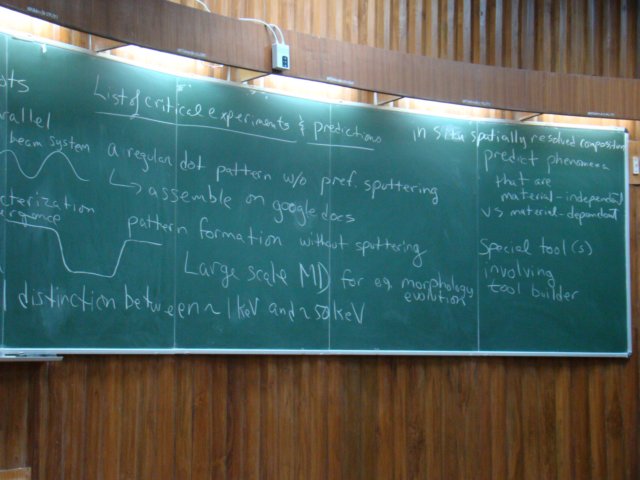 List of critical experiments & predictions
a regular dot pattern w/o pref. sputtering
↳ assemble on google docs
pattern formation without sputtering
Large scale MD for eg morphology
evolution
distinction between ~ 1keV and ~ 50 keV
beam system
in situ spatially resolved composition
predict phenomena
that are
material-independent
VS material-dependent
Special tool(s)
involving
tool builder